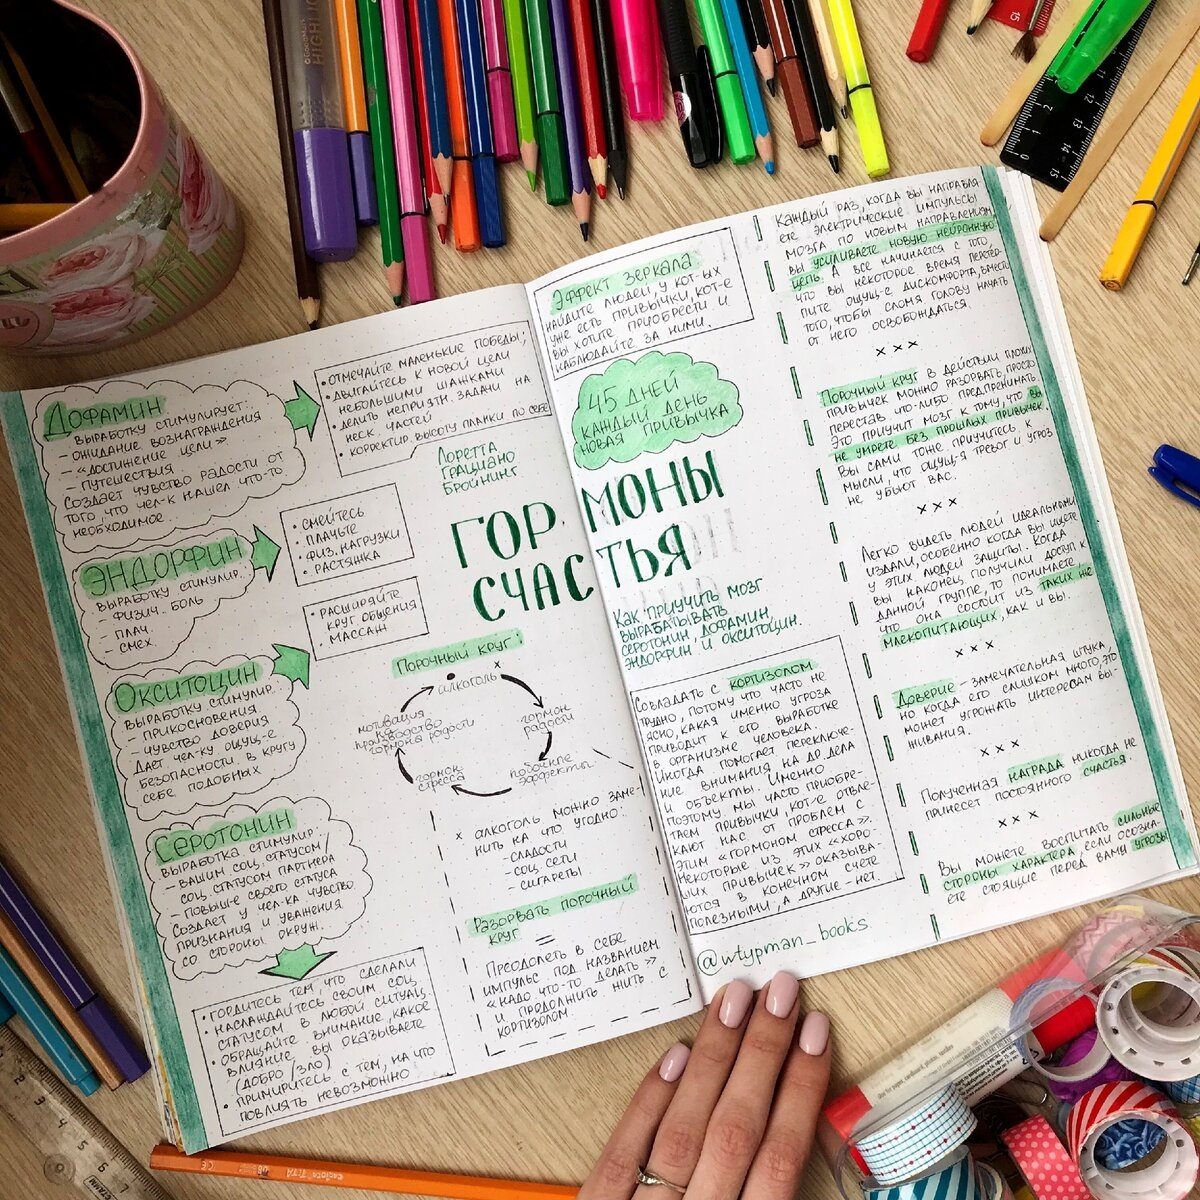 Дофамин
выработку стимулирует:
- ожидание вознаграждения
- «достижение цели»
- путешествия
Создает чувство радости от
того, что чел-к нашел что-то
необходимое.
• отмечайте маленькие победы;
• двигайтесь к новой цели
небольшими шажками
• делить неприятн. задачи на
неск. частей
• корректир. высоту планки по себе
Эндорфин
выработку стимулир.:
- физич. боль
- плач.
- смех.
• смейтесь
• плачьте
• физ. нагрузки.
• растяжка
Окситоцин
выработку стимулир.:
- прикосновения
- чувство доверия
Дает чел-ку ощущ-е
безопасности в кругу
себе подобных
• расширяйте
круг общения
• массаж
Серотонин
выработка стимулир.:
- вашим соц. статусом/
соц. статусом партнера
- повыш-е своего статуса
Создает у чел-ка чувство
признания и уважения
со стороны окруж.
• гордитесь тем, что сделали
• наслаждайтесь своим соц.
статусом в любой ситуац.
• обращайте внимание, какое
влияние вы оказываете
(добро/зло)
• примиритесь с тем, на что
повлиять невозможно
Лоретта
Грациано
Бройнинг
ГОРМОНЫ
СЧАСТЬЯ
Как приучить мозг
вырабатывать
серотонин, дофамин,
эндорфин и окситоцин.
Порочный круг:
x
алкоголь
гормон
радости
побочные
эффекты.
гормон
стресса
мотивация
производство
гормона радости
x алкоголь можно заме-
нить на что угодно:
- сладости
- соц. сети
- сигареты
Разорвать порочный
круг
=
Преодолеть в себе
импульс под названием
«надо что-то делать»
и продолжить жить с
кортизолом.
Эффект зеркала:
найдите людей, у кот-ых
уже есть привычки, кот-е
вы хотите приобрести и
наблюдайте за ними.
45 дней
каждый день
новая привычка
Совладать с кортизолом
трудно, потому что часто не
ясно, какая именно угроза
приводит к его выработке
в организме человека.
Иногда помогает переключе-
ние внимания на др. дела
и объекты. Именно
поэтому мы часто приобре-
таем привычки, кот-е отвле-
кают нас от проблем с
этим «гормоном стресса».
Некоторые из этих «хоро-
ших привычек» оказыва-
ются в конечном счете
полезными, а другие - нет.
@wtypman_books
Каждый раз, когда вы направля
ете электрические импульсы
мозга по новым направлениям,
вы усиливаете новую нейронную
цепь. А все начинается с того,
что вы некоторое время перетер-
пите ощущ-е дискомфорта, вместо
того, чтобы сломя голову начать
от него освобождаться.
x x x
Порочный круг в действии плохих
привычек можно разорвать, просто
перестав что-либо предпринимать.
Это приучит мозг к тому, что вы
не умрете без прошлых привычек.
Вы сами тоже приучитесь к
мысли, что ощущ-я тревог и угроз
не убьют вас.
x x x
Легко видеть людей идеальными
издали, особенно когда вы ищете
у этих людей защиты. Когда
вы наконец получили доступ к
данной группе, то понимаете,
что она состоит из таких же
млекопитающих, как и вы.
x x x
Доверие - замечательная штука,
но когда его слишком много, это
может угрожать интересам вы-
живания.
x x x
Полученная награда никогда не
принесет постоянного счастья.
x x x
Вы можете воспитать сильные
стороны характера, если осозна-
ете стоящие перед вами угрозы